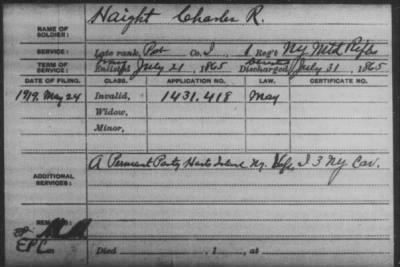 NAME OF SOLDIER: Haight Charles R.
SERVICE: Late rank, Pvt Co. I, 6 Reg't Ny Mtd Rifs
TERM OF SERVICE: Enlisted July 21, 1865 Discharged July 31, 1865
DATE OF FILING. CLASS. APPLICATION NO. LAW. CERTIFICATE NO.
1919, May 24 Invalid, 1431.418 May
Widow,
Minor,
ADDITIONAL SERVICES: A Permant Party Harts Island Ny. I 3 Ny Cav.
REMARKS:
Died , 1 , at